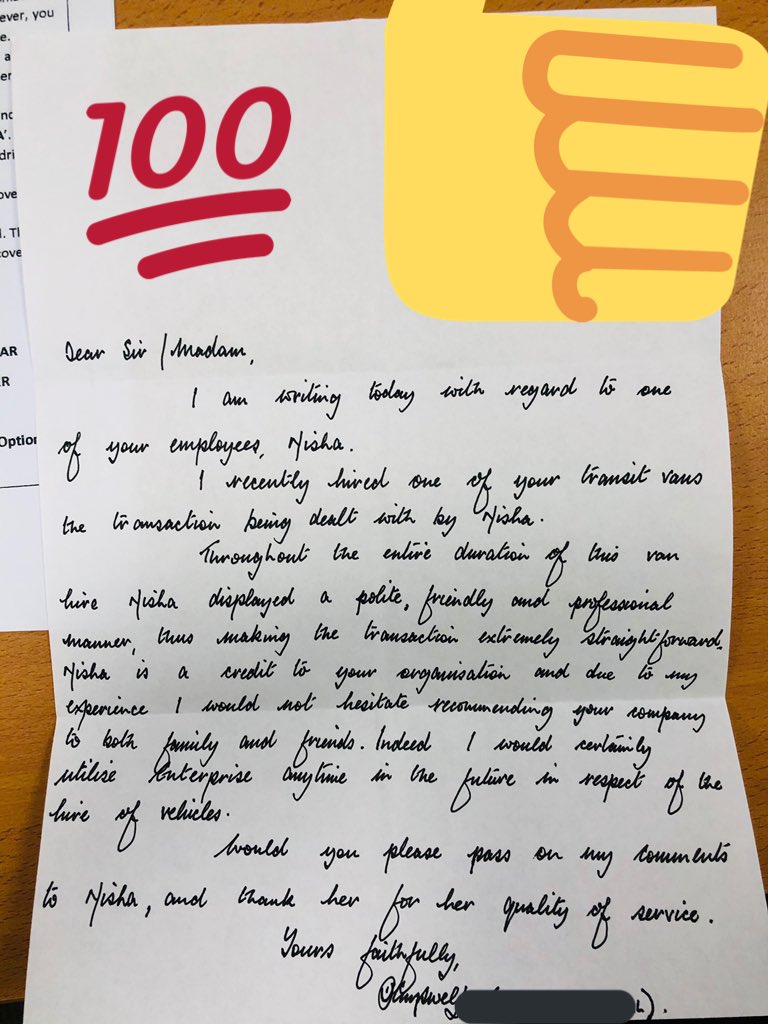 ever, you
e.
a
er
nc
A'.
dri
ove
. Th
cove
AR
R
Option
100
Dear Sir / Madam,
I am writing today with regard to one
of your employees, Nisha.
I recently hired one of your transit vans
the transaction being dealt with by Nisha.
Throughout the entire duration of this van
hire Nisha displayed a polite, friendly and professional
manner, thus making the transaction extremely straightforward.
Nisha is a credit to your organisation and due to my
experience I would not hesitate recommending your company
to both family and friends. Indeed I would certainly
utilise Enterprise anytime in the future in respect of the
hire of vehicles.
Would you please pass on my comments
to Nisha, and thank her for her quality of service.
Yours faithfully,